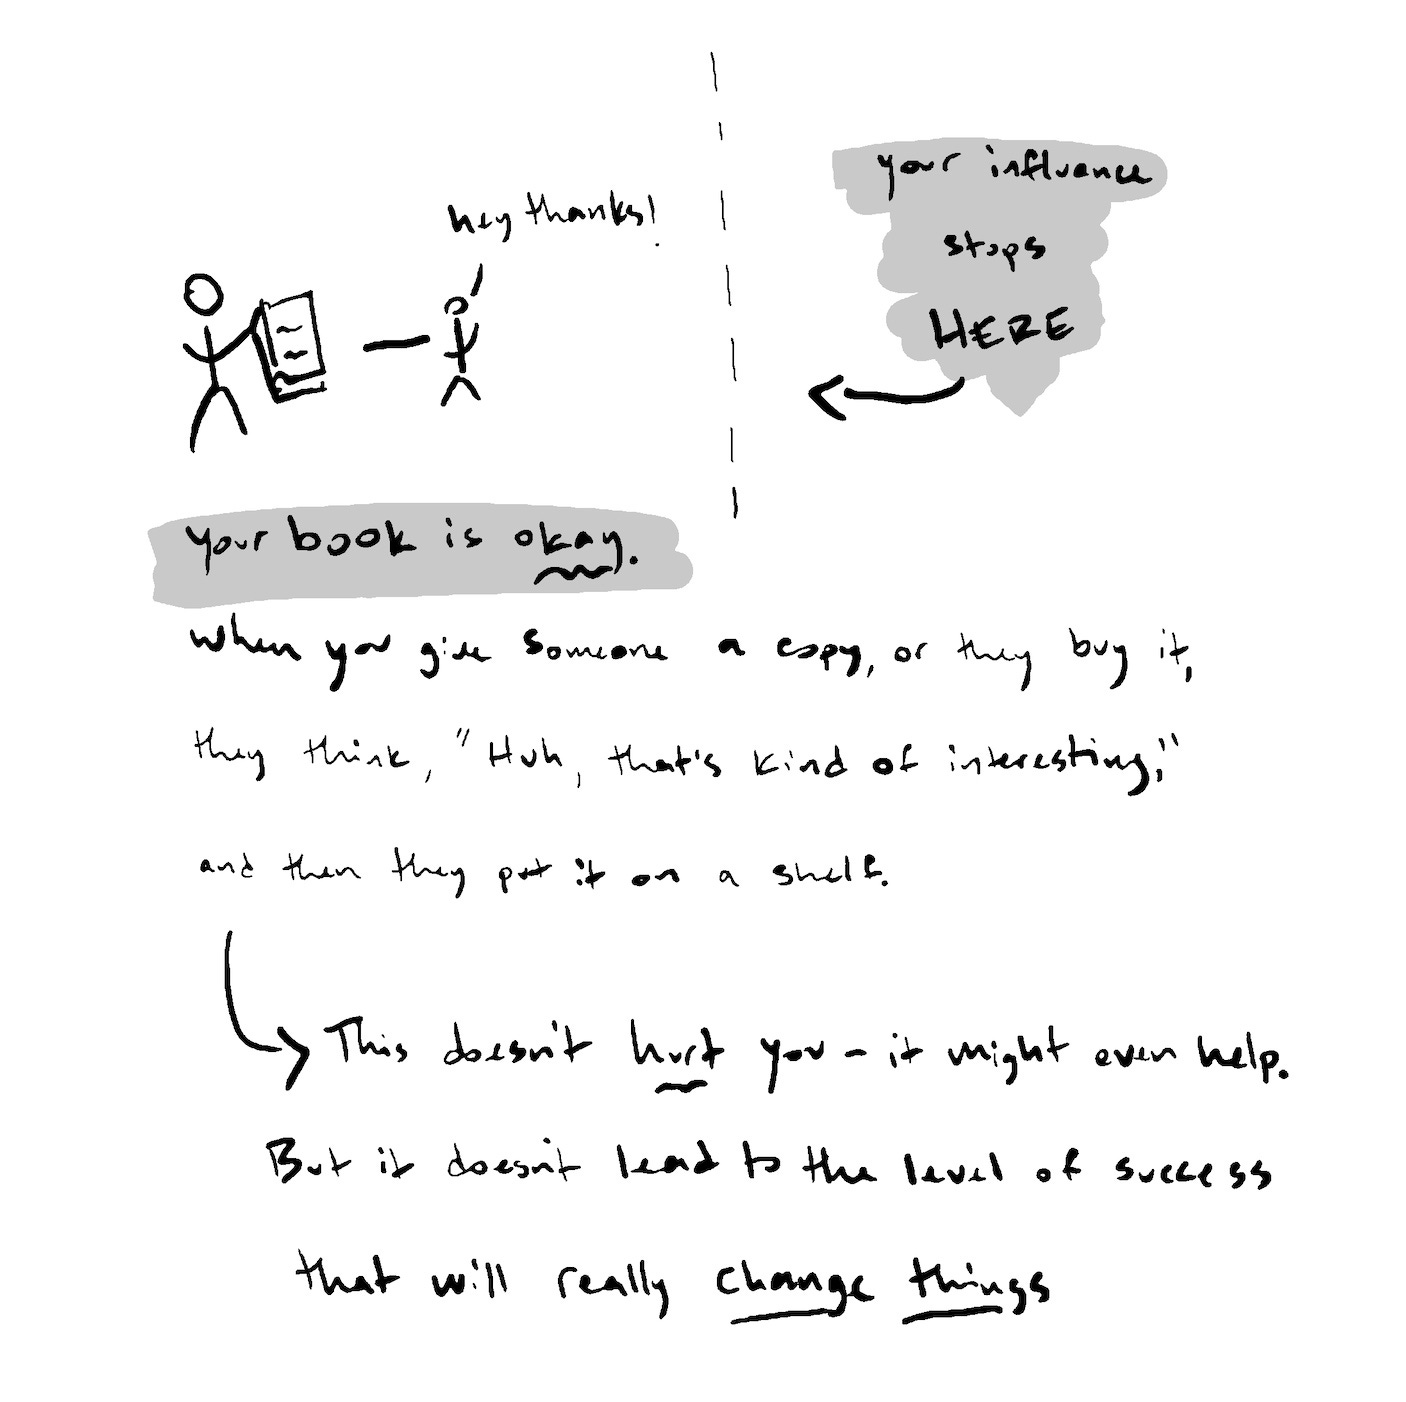 hey thanks!
your influence
stops
HERE
your book is okay.
When you give someone a copy, or they buy it,
they think, "Huh, that's kind of interesting,"
and then they put it on a shelf.
This doesn't hurt you - it might even help.
But it doesn't lead to the level of success
that will really change things